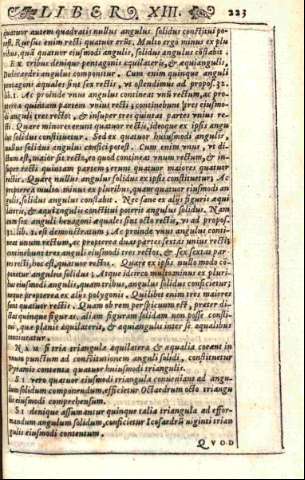 LIBER XIII. 223
quatuor autem quadratis nullus angulus solidus constitui po-
test. Rursus enim recti quatuor erūt. Multo ergo minus ex plu
ribus, quā quatuor eiusmodi angulis, solidus angulus cōstabit.
Ex tribus denique pentagonis equilateris, & æquiangulis,
Dodecaedri angulus componitur. Cum enim quinque anguli
pentagoni æquales sint sex rectis, vt ostendimus ad propos. 32.
lib. 1. Ac proinde vnus angulus contineat vnū rectum, ac pro-
pterea quintam partem vnius recti; continebunt tres eiusmo-
di anguli tres rectos, & insuper tres quintas partes vnius re-
cti. Quare minores erunt quatuor rectis, ideoque ex ipsis angu
lus solidus constituetur. Sed ex quatuor huiusmodi angulis,
nullus solidus angulus confici potest. Cum enim vnus, vt di-
ctum est, maior sit recto, eo quod contineat vnum rectum, & in-
super recti quintam partem; erunt quatuor maiores quatuor
rectis. Quare nullus angulus solidus ex ipsis constituetur. Ac
propterea multo minus ex pluribus, quam quatuor eiusmodi an
gulis, solidus angulus constabit. Nec sane ex alijs figuris æqui
lateris, & æquiangulis constitui poterit angulus solidus. Nam
cum sex anguli hexagoni æquales sint octo rectis, vt ad propos.
32. lib. 1. est demonstratum; Ac proinde vnus angulus conti-
neat unum rectum, ac propterea duas partes sextas unius recti;
continebunt tres anguli eiusmodi tres rectos, & sex sextas par-
tes recti, hoc est, quatuor rectos. Quare ex ipsis nullo modo cō-
stituetur angulus solidus; Atque idcirco multo minus ex pluri-
bus eiusmodi angulis, quam tribus, angulus solidus conficietur;
neque propterea ex alijs polygonis. Quilibet enim tres maiores
sunt quatuor rectis. Quam ob rem perspicuum est, præter di-
ctas quinque figuras, aliam figuram solidam non posse consti-
tui, quæ planis æquilateris, & æquiangulis inter se æqualibus
contineatur.
NAM si tria triangula æquilatera & æqualia coeant in
vnum punctum ad constitutionem anguli solidi, constituetur
Pyramis contenta quatuor huiusmodi triangulis.
SI vero quatuor eiusmodi triangula conueniant ad angu-
lum solidum componendum, efficietur Octaedrum octo triangu
lis eiusmodi comprehensum.
SI denique assumantur quinque talia triangula ad effor-
mandum angulum solidum, conficietur Icosaedrū viginti trian
gulis eiusmodi contentum.
QVOD